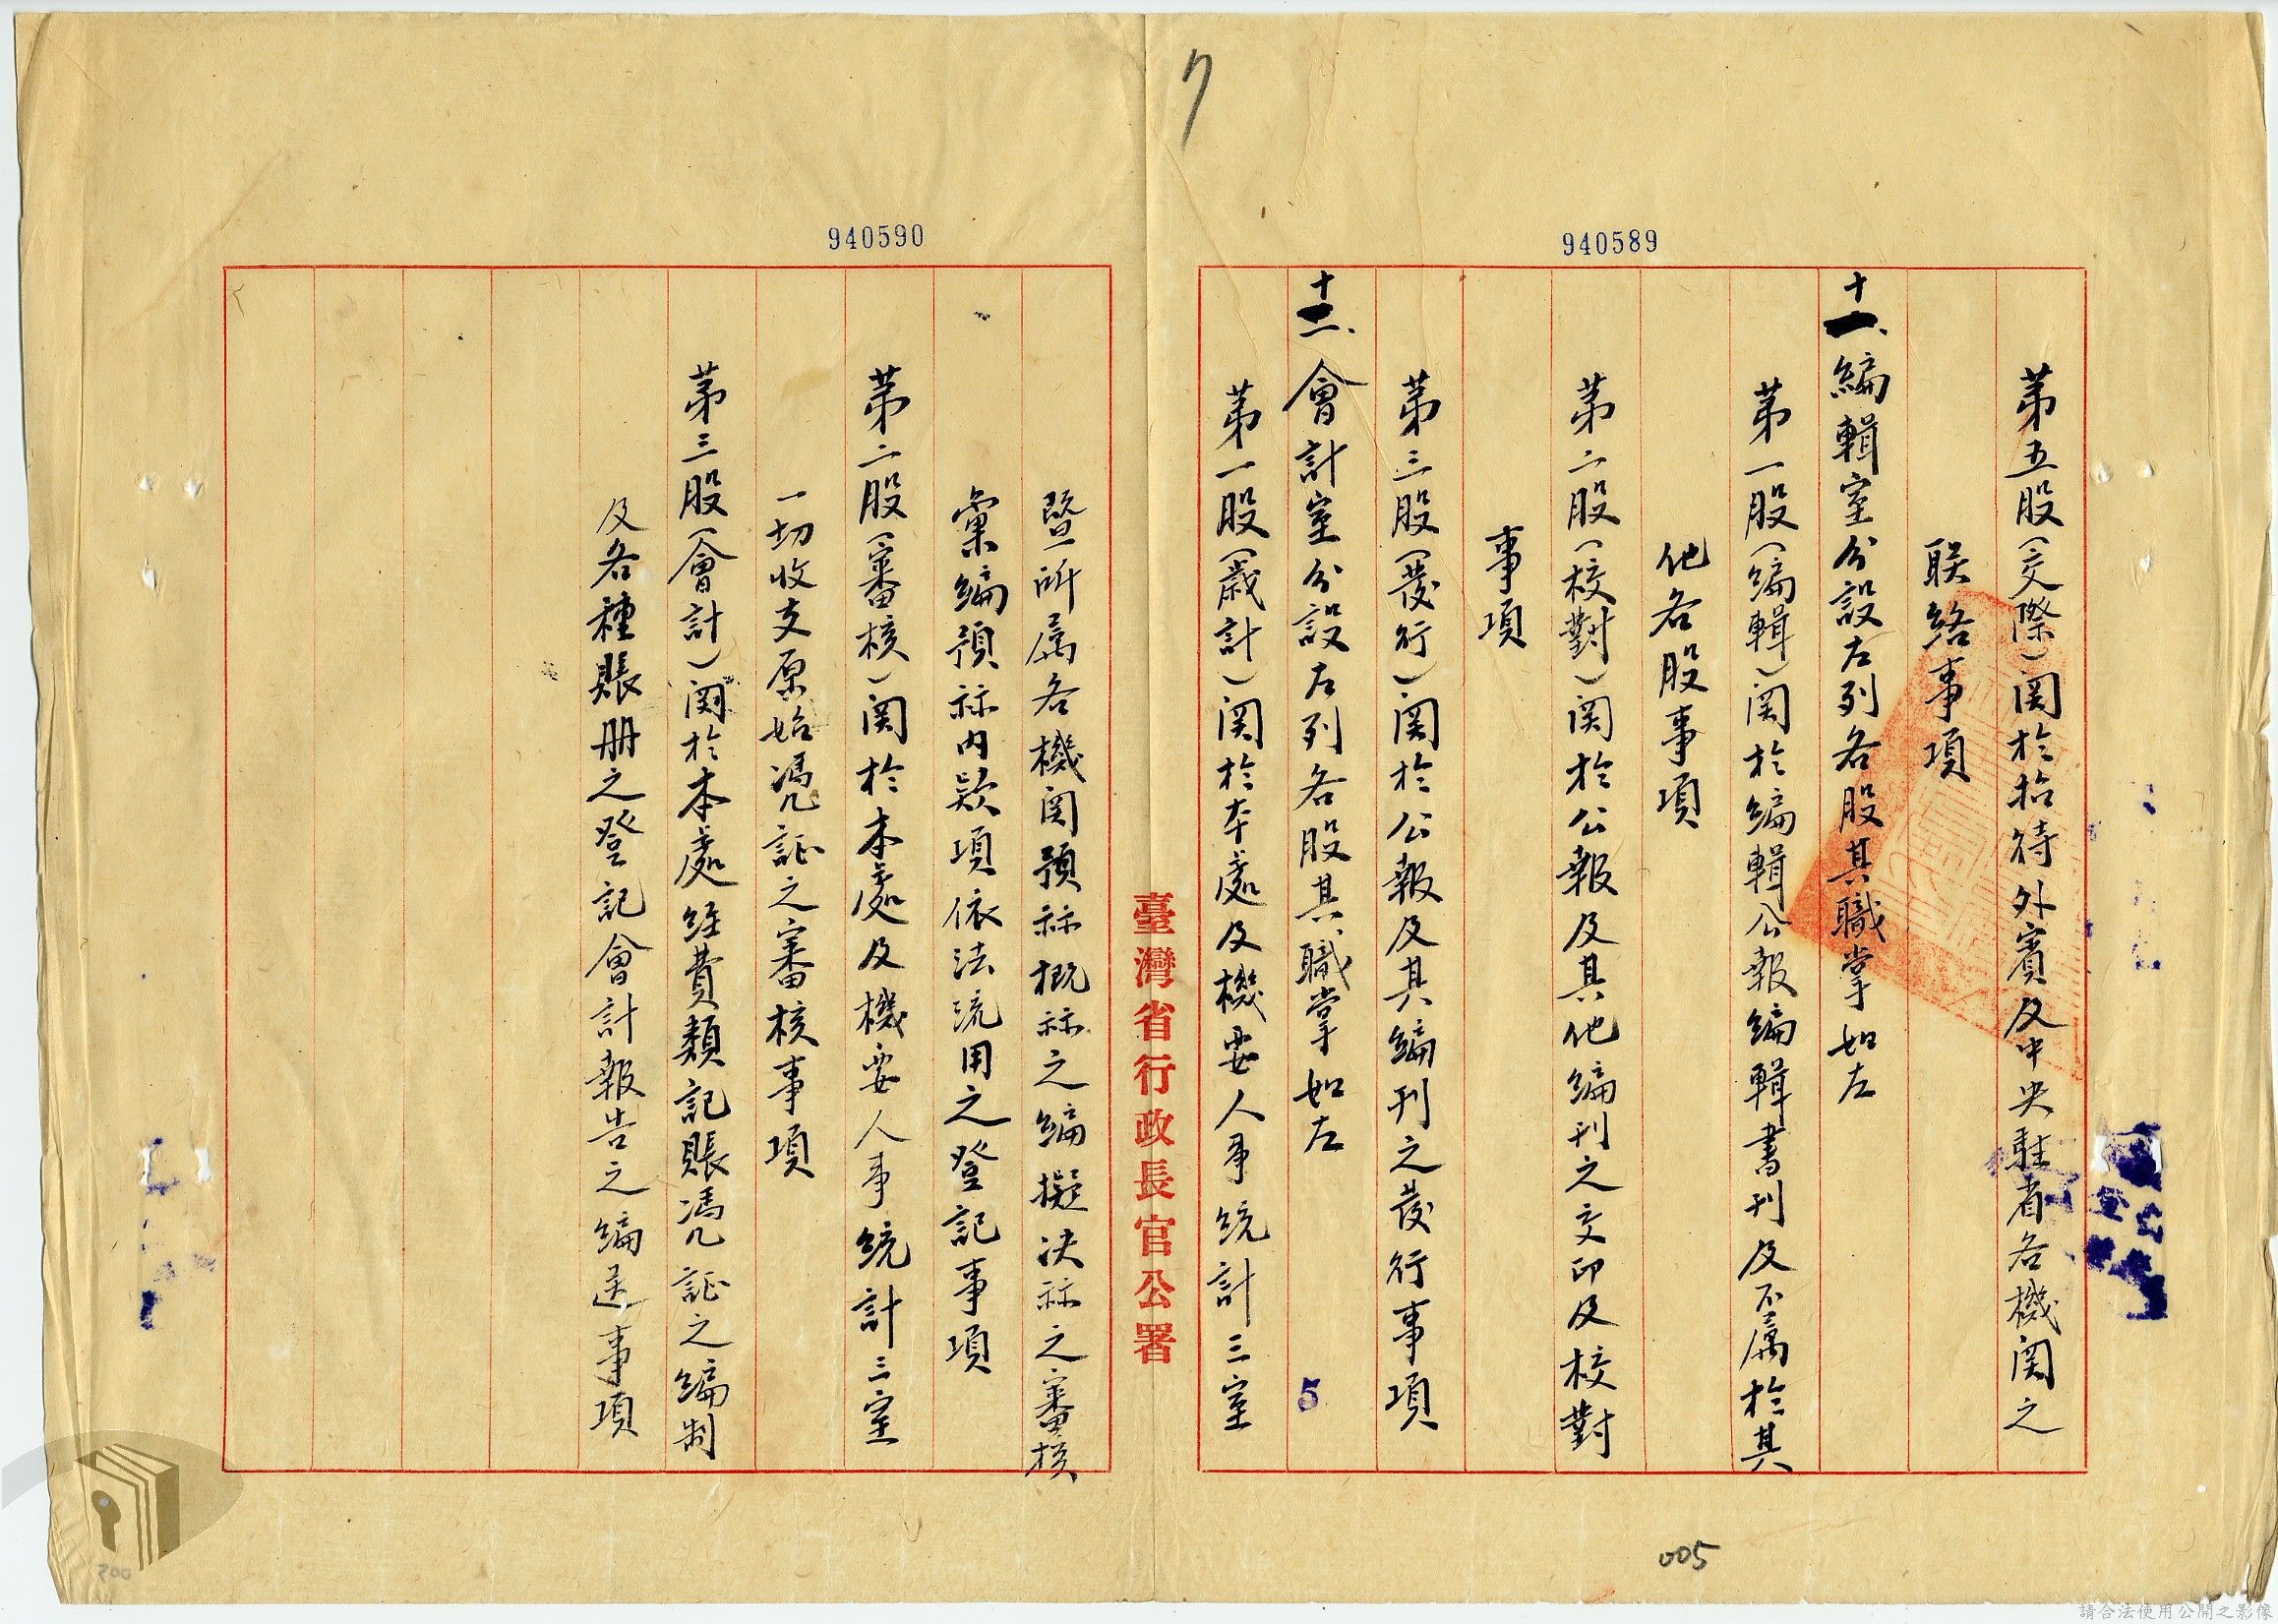 7
940589
第五股(交際)関於招待外賓及中央駐省各機関之
联絡事項
十一、編輯室分設左列各股其職掌如左
第一股(編輯)関於編輯公報編輯書刊及不屬於其
他各股事項
第二股(校對)関於公報及其他編刊之交印及校對
事項
第三股(發行)関於公報及其編刊之發行事項
十二、會計室分設左列各股其職掌如左
第一股(歲計)関於本處及機要人事統計三室
5
005
臺灣省行政長官公署
940590
暨所属各機関預祘概祘之編擬決祘之審核
彙編預祘内欵項依法流用之登記事項
第二股(審核)関於本處及機要人事統計三室
一切收支原始憑証之審核事項
第三股(會計)関於本處經費類記賬憑証之編制
及各種賬册之登記會計報告之編送事項
請合法使用公開之影像